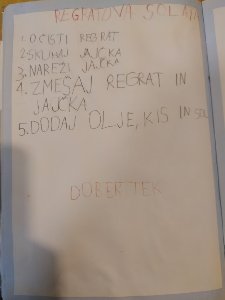 REGRATOVA SOLATA
1. OČISTI REGRAT
2. SKUHAJ JAJČKA
3. NAREŽI JAJČKA
4. ZMEŠAJ REGRAT IN
JAJČKA
5. DODAJ OLJE, KIS IN SOL
DOBER TEK